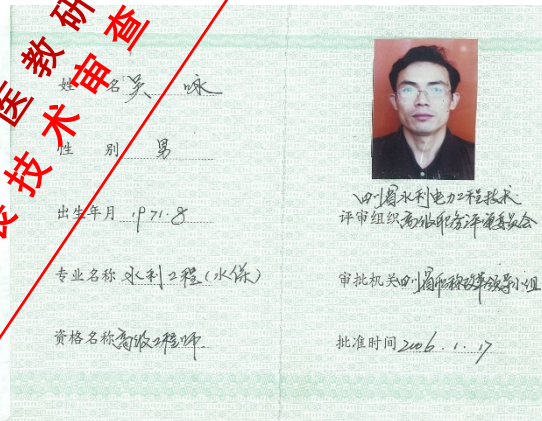 医教研
技术审查
姓 名 吴 咏
性 别 男
出生年月 1971.8
专业名称 水利工程(水保)
资格名称 高级工程师
四川省水利电力工程技术
评审组织 高级职务评审委员会
审批机关 四川省职称改革领导小组
批准时间 2006.1.17